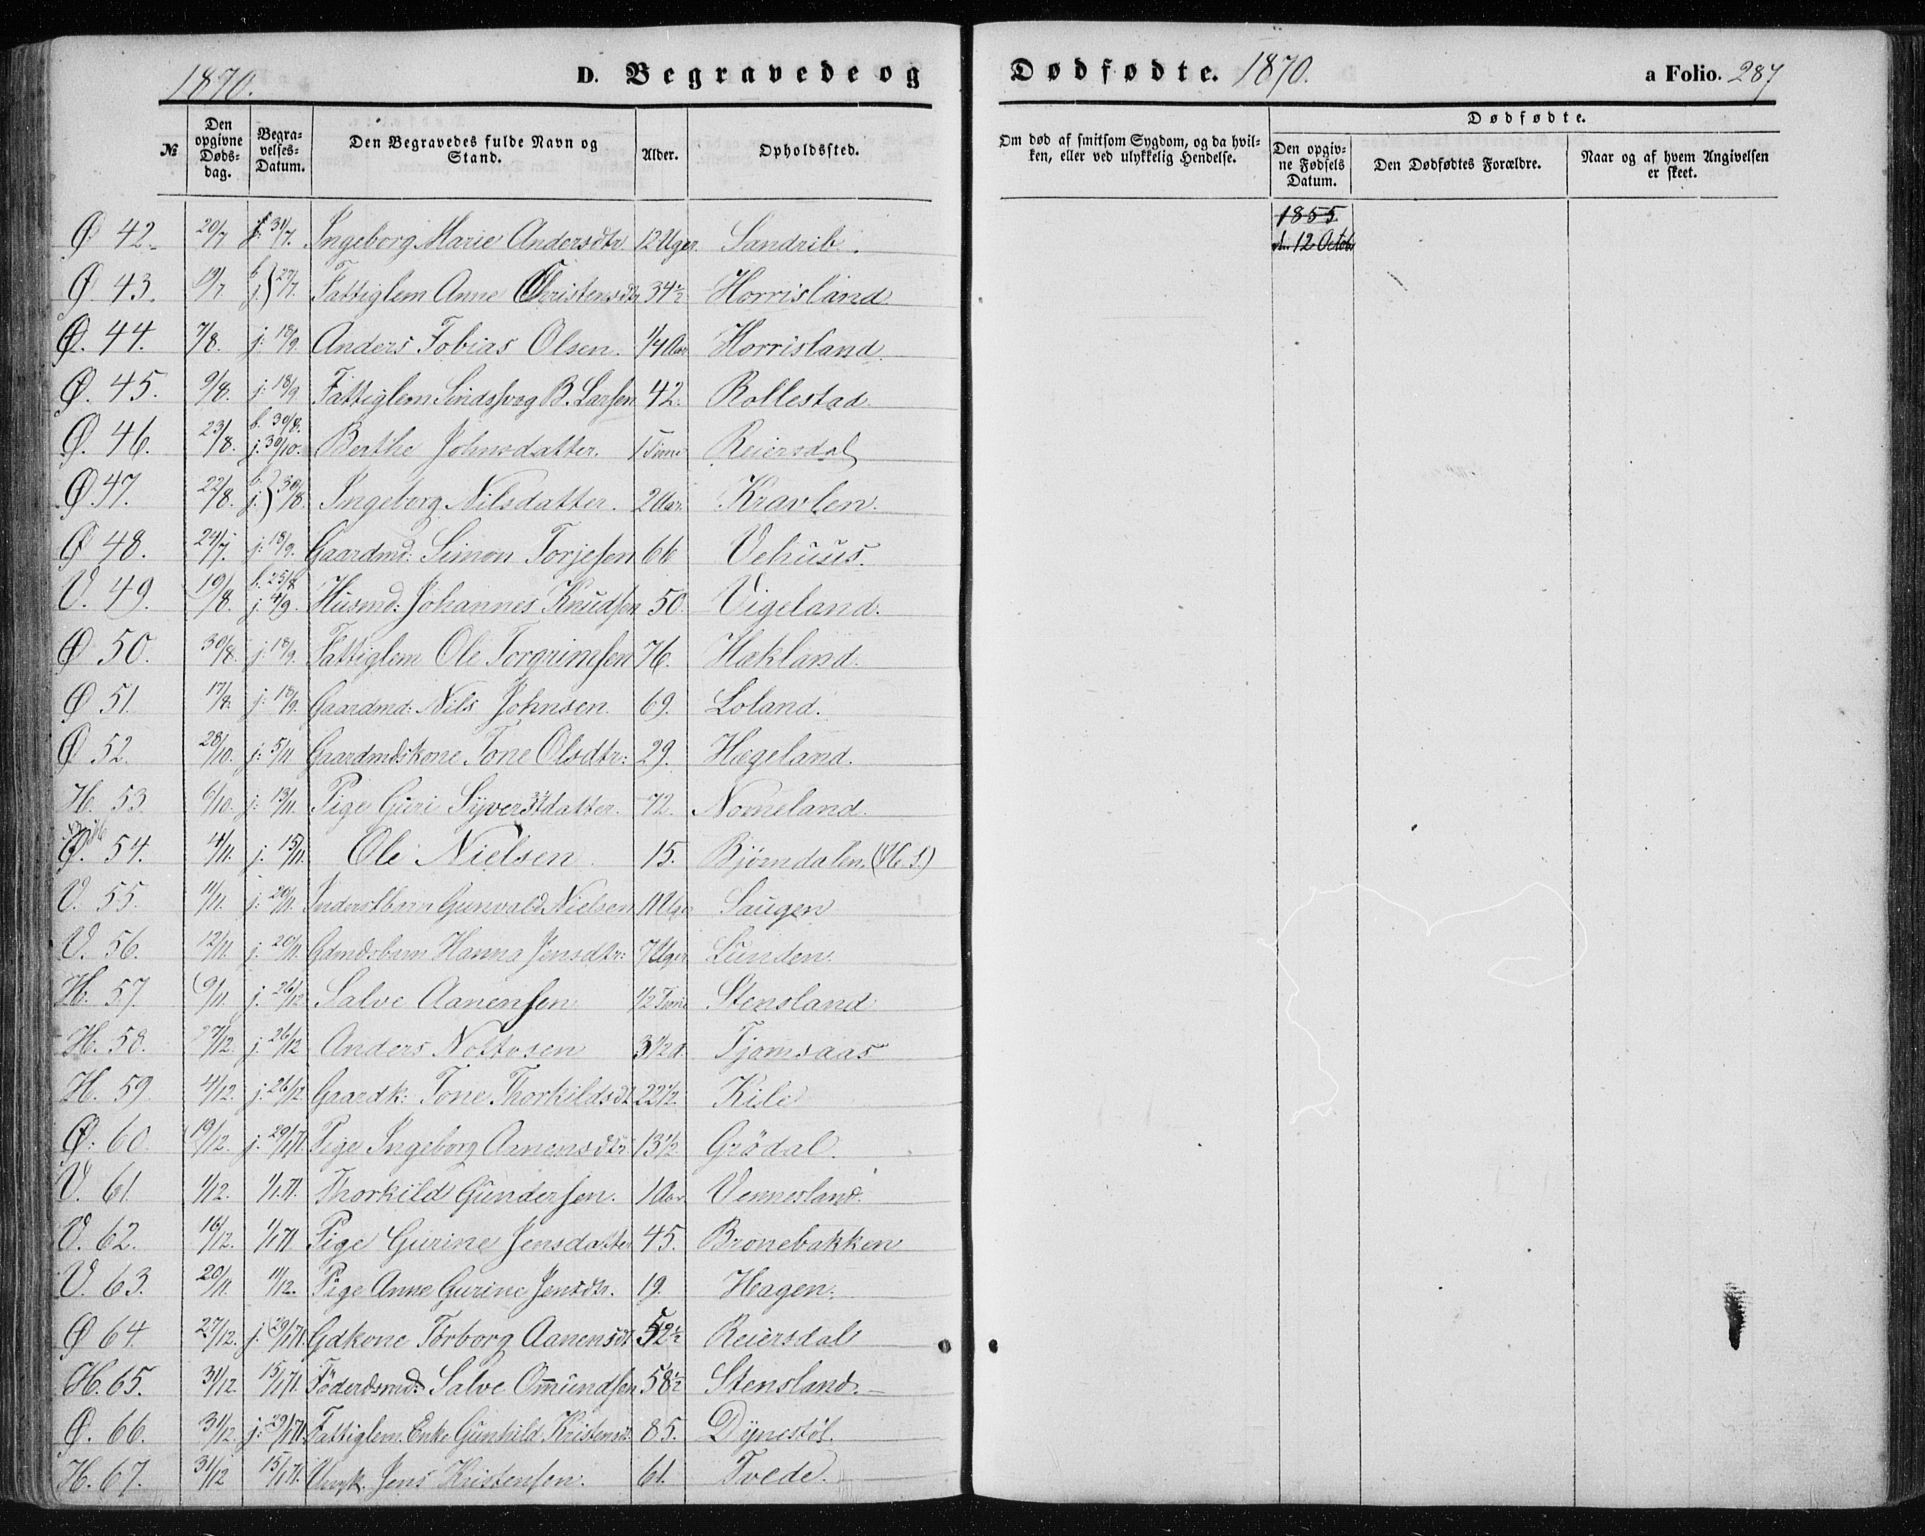 1870. D. Begravede og Dødfødte. 1870. a Folio. 287
№ Den opgivne Døds-dag. Begra-velses-Datum. Den Begravedes fulde Navn og Stand. Alder. Opholdssted. Om død af smitsom Sygdom, og da hvil-ken, eller ved ulykkelig Hendelse. Dødfødte. Den opgiv-ne Fødsels Datum. Den Dødfødtes Forældre. Naar og af hvem Angivelsen er skeet.
Ø 42. 20/7 j. 31/7. Ingeborg Marie Andersdtr 12 Uger Sandrib. 1855 12 Octob
Ø. 43. 19/7 b. j. } 27/7. Fattiglem Anne Christensdtr 34½ Horrisland
Ø. 44. 7/8. j. 18/9. Anders Tobias Olsen. 1/4 Aar Horrisland
Ø. 45. 9/8. j. 18/9. Fattiglem B. Larsen 42. Rollestad
Ø. 46. 23/8. b. 30/8. j. 30/10. Berthe Johnsdatter. 1 Time Reiersdal
Ø 47. 22/8. b. j. } 30/8. Ingeborg Nilsdatter. 2 Aar. Kravlen.
Ø 48. 24/7. j. 18/9. Gaardmd: Simon Torjesen 66 Vehuus.
V. 49. 19/8. b. 25/8 j. 4/9. Husmd: Johannes Knudsen 50. Vigeland.
Ø 50. 30/8. j. 18/9. Fattiglem Ole Torgrimsen 76. Hækland.
Ø 51. 17/8. j. 18/9. Gaardmd: Nils Johnsen. 69. Loland.
Ø 52. 28/10. j. 5/11 Gaardmdskone Tone Olsdtr: 29. Hægeland.
H. 53. 6/10. j. 13/11. Pige Guri Syversdatter. 72. Nomeland.
Ø. 54. 4/11. j. 15/11. Ole Nielsen 15. Bjørndalen. (H. S.)
V. 55. 11/11. j. 20/11. Gunvald Nielsen 11 Uger Saugen
V. 56. 12/11. j. 20/11. Gdmdsbarn Hanna Jensdtr: 7 Uger Lunden.
H. 57. 9/11. j. 26/12 Salve Aanensen ½ Time Stensland
H. 58. 27/12. j. 26/12 Anders Nottosen 3½ d. Tjomsaas
H. 59. 4/12. j. 26/12 Gaardk: Tone Thorkildsdt 22½. Kile
Ø. 60. 19/12. j. 29/1 71. Pige Ingeborg Aanensdtr. 13½. Grödal.
V. 61. 1/12. 1/1 71. Thorkild Gundersen. 1 Aar. Vennesland.
V. 62. 16/12. 1/1 71. Pige Gurine Jensdatter 45. Bronebakken
V. 63. 20/11. 11/12. Pige Anne Gurine Jensdtr. 19. Hagen.
Ø 64. 27/12. j. 29/1 71. Gdkone Torborg Aanensdt 52½ Reiersdal
H. 65. 31/12. 15/1 71. Föderdsmd: Salve Omundsen 58½ Stensland.
Ø. 66. 31/12. j. 29/1 71. Fattiglem. Enke Gunhild Kristensd: 85. Dynestöl.
H. 67. 31/12 15/1 71. Jens Kristensen. 61. Tvede.